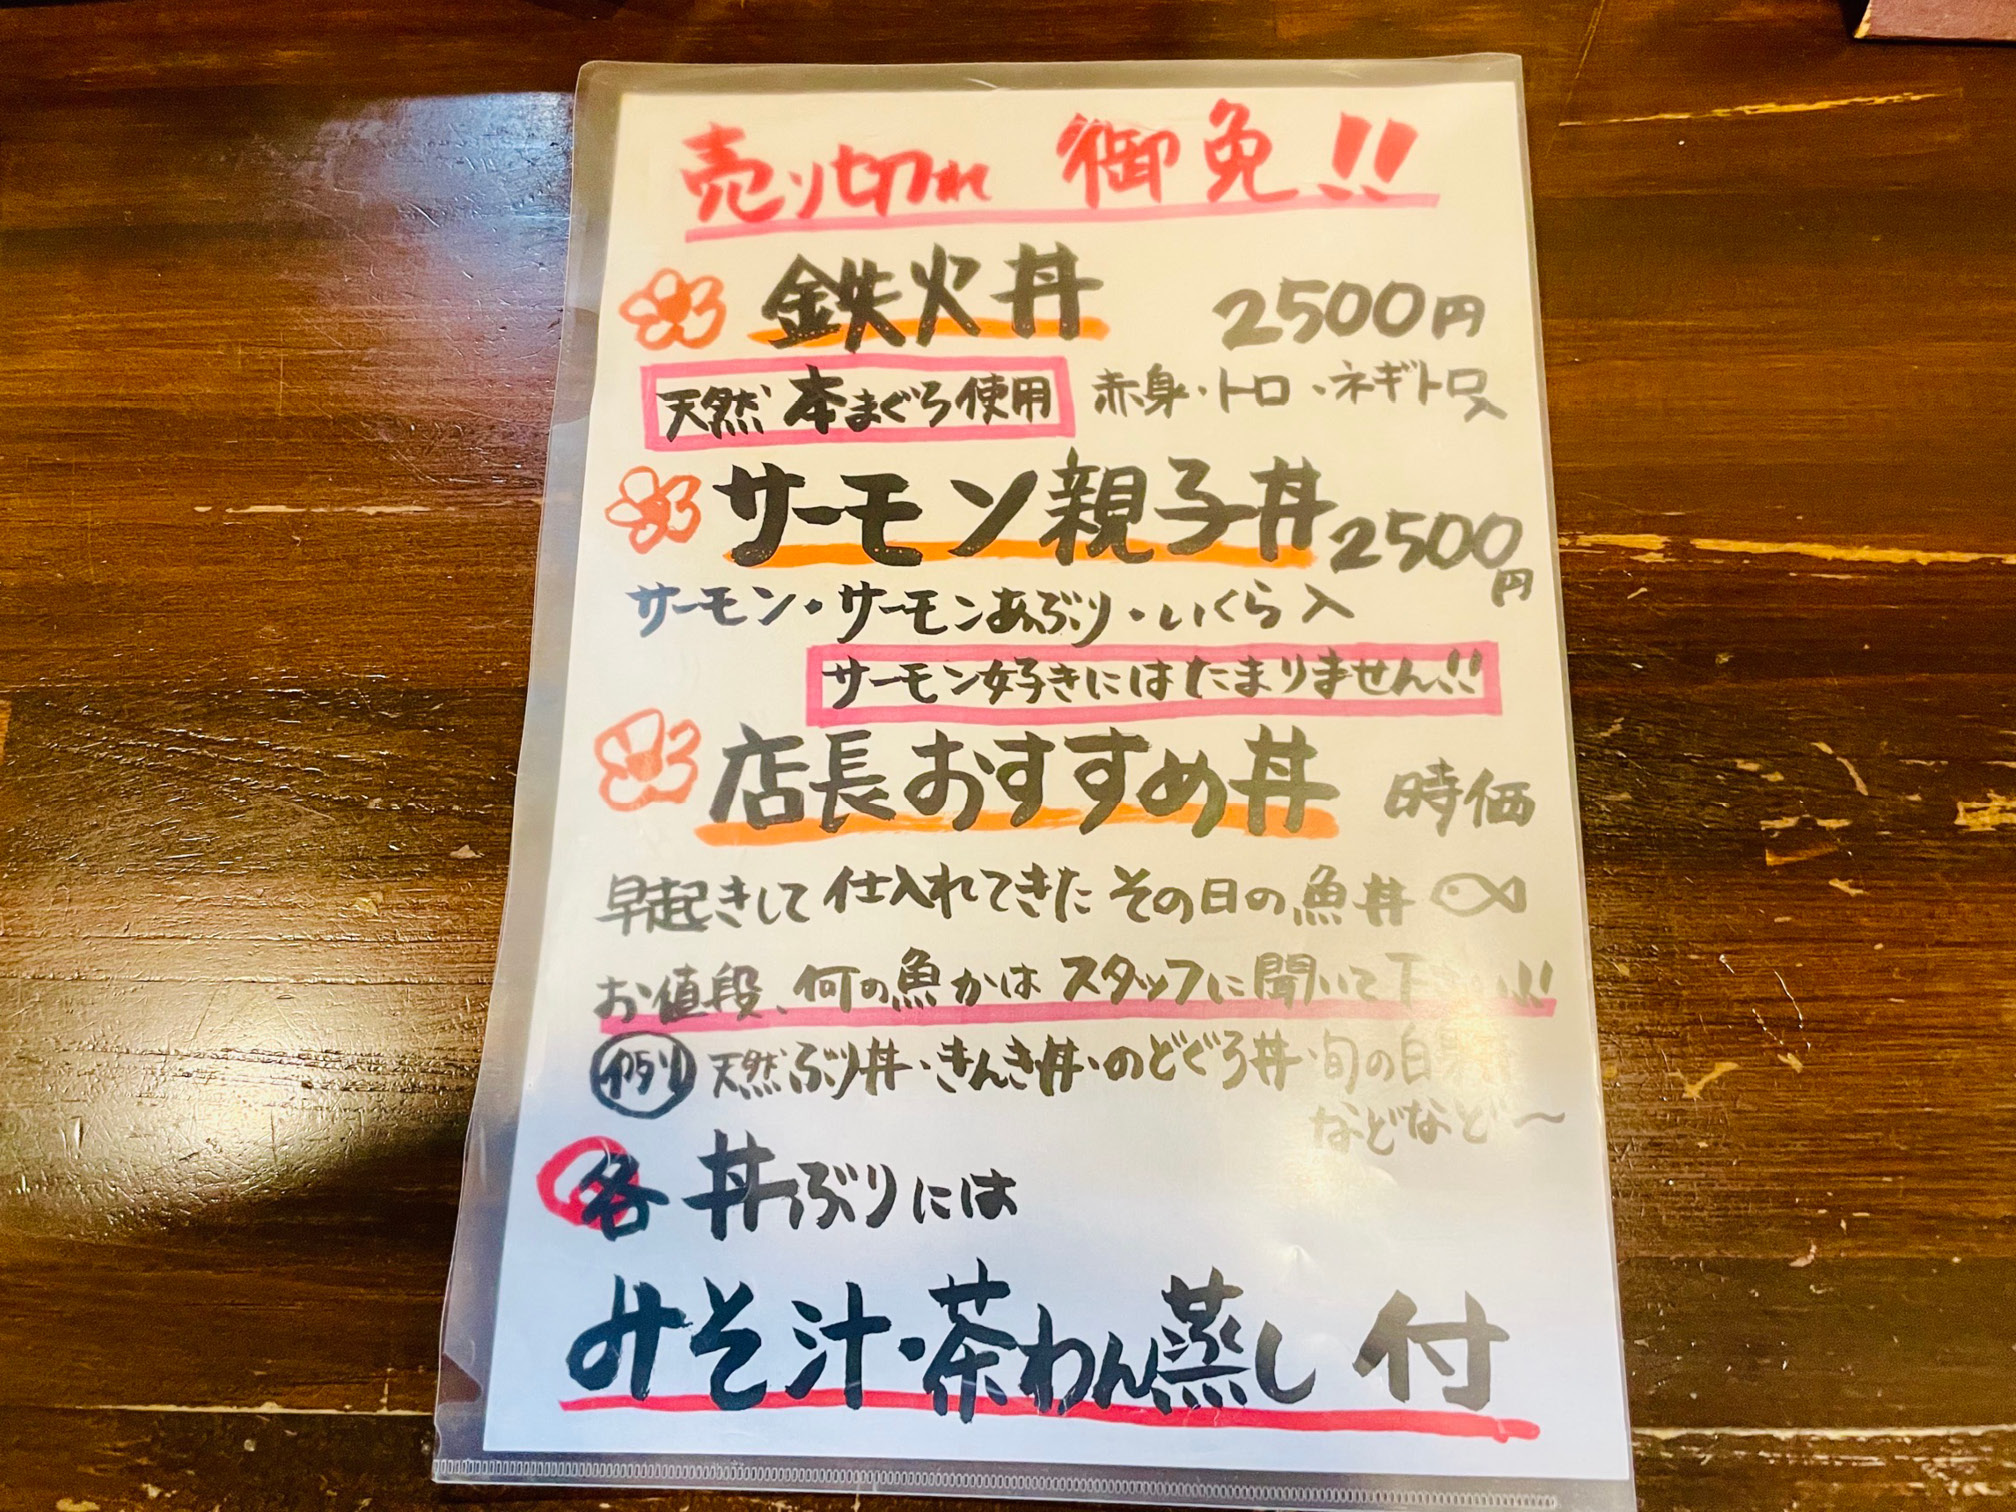 売り切れ 御免!!
鉄火丼 2500円
天然 本まぐろ使用 赤身・トロ・ネギトロ入
サーモン親子丼 2500円
サーモン・サーモンあぶり・いくら入
サーモン好きにはたまりません!!
店長おすすめ丼 時価
早起きして仕入れてきたその日の魚丼
お値段、何の魚かはスタッフに聞いて下さい!!
天然ぶり丼・きんき丼・のどぐろ丼・旬の白身丼
などなど〜
各 丼ぶりには
みそ汁・茶わん蒸し 付